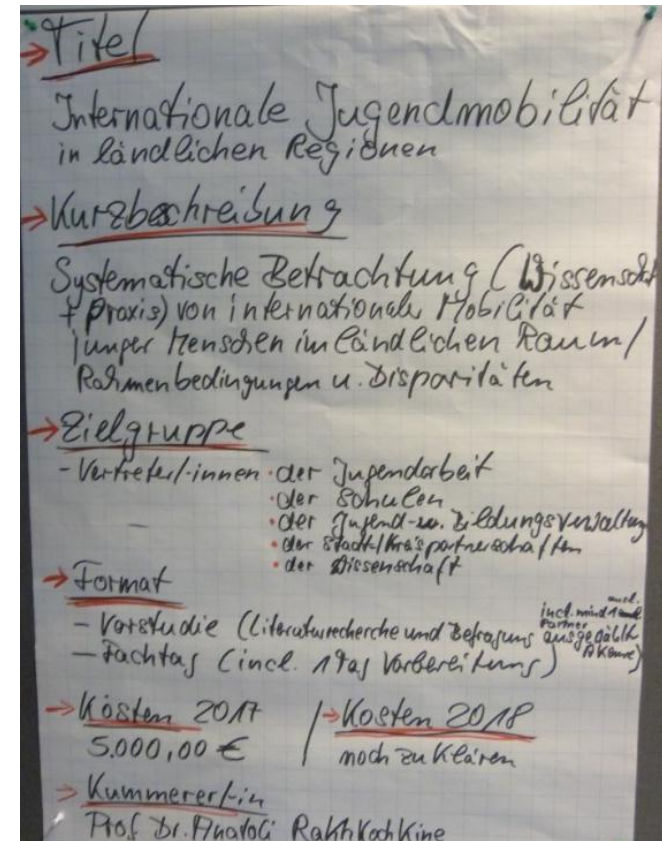 → Titel
Internationale Jugendmobilität
in ländlichen Regionen
→ Kurzbeschreibung
Systematische Betrachtung (Wissenschaft
+ Praxis) von internationaler Mobilität
junger Menschen im ländlichen Raum/
Rahmenbedingungen u. Disparitäten
→ Zielgruppe
- Vertreter/-innen · der Jugendarbeit
· der Schulen
· der Jugend- u. Bildungsverwaltung
· der Stadt-/Kreispartnerschaften
· der Wissenschaft
→ Format
- Vorstudie (Literaturrecherche und Befragung ausgewählt Akteure)
incl. mind 1 ausl. Partner
- Fachtag (incl. 1 Tag Vorbereitung)
→ Kosten 2017 | → Kosten 2018
5.000,00 € | noch zu klären
→ Kümmerer/-in
Prof. Dr. Anatoli Rakhkochkine